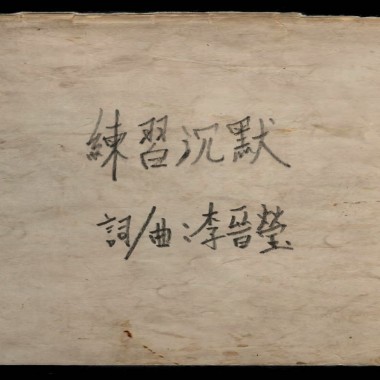 練習沉默
詞/曲:李晉瑩